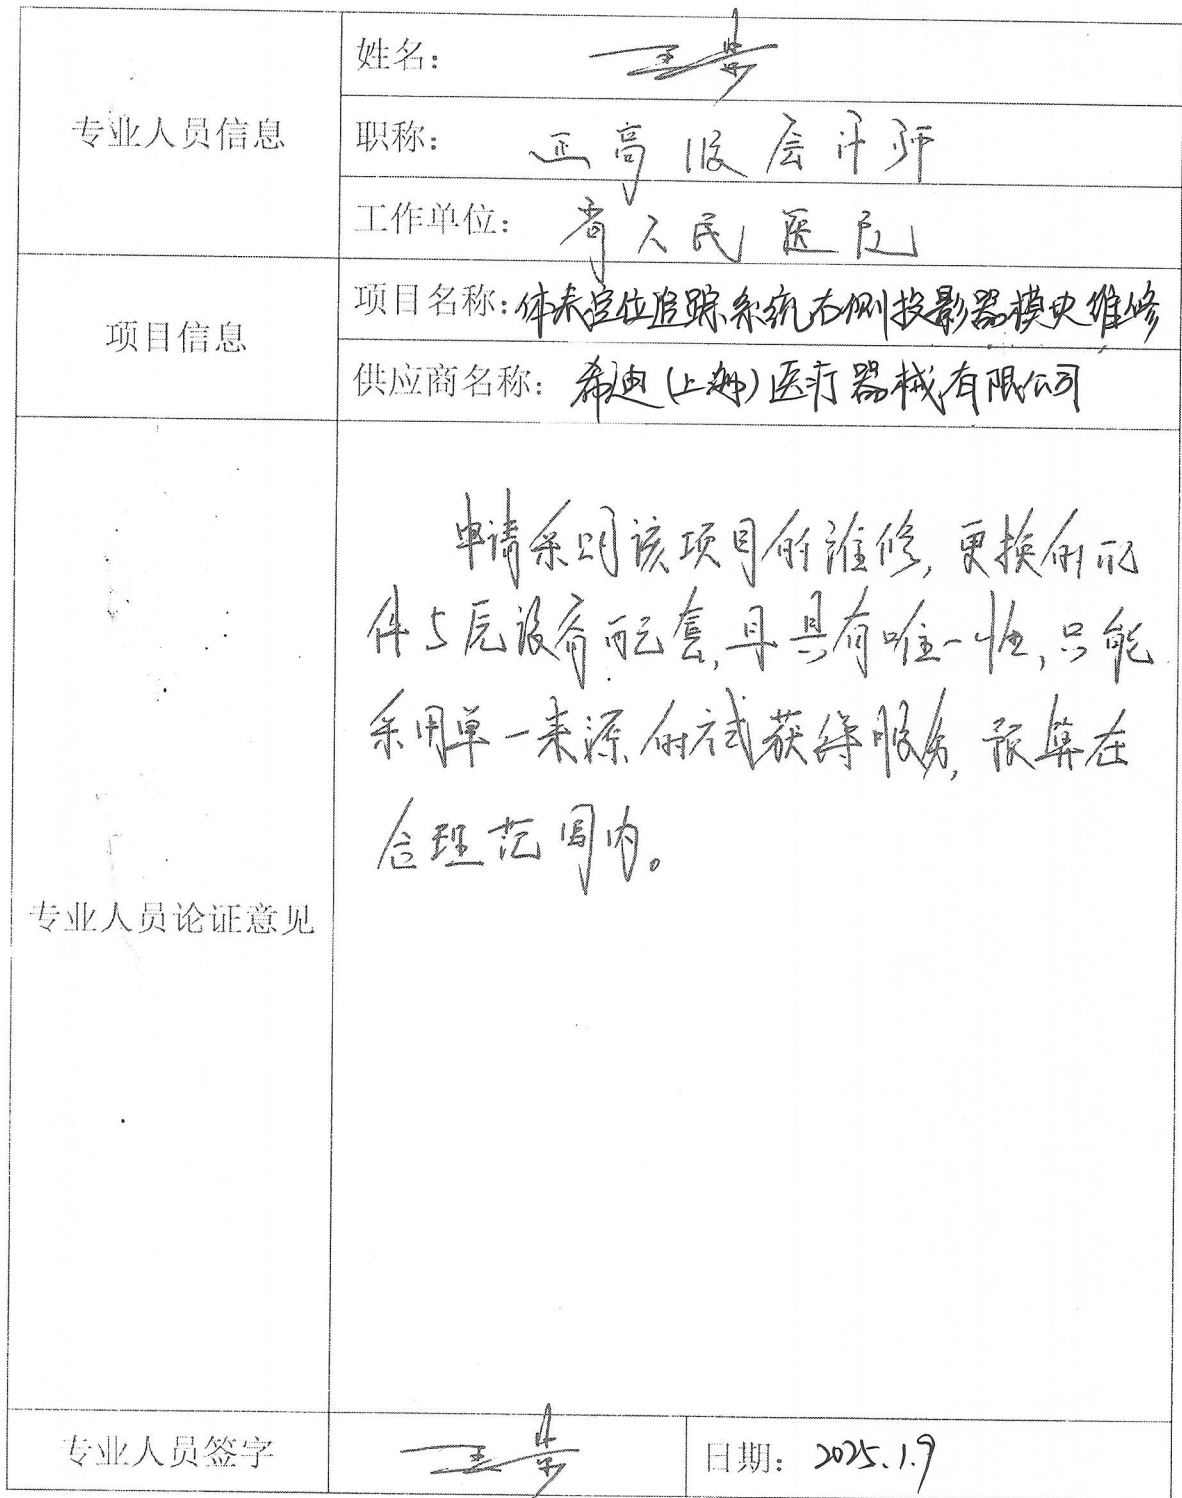 专业人员信息
姓名：王
职称：正高级会计师
工作单位：省人民医院
项目信息
项目名称：体表定位追踪系统右侧投影器模块维修
供应商名称：希迪（上海）医疗器械有限公司
专业人员论证意见
申请采购该项目的维修，更换的配
件与原设备配套，且具有唯一性，只能
采用单一来源的方式获得服务，预算在
合理范围内。
专业人员签字 王
日期：2025.1.9